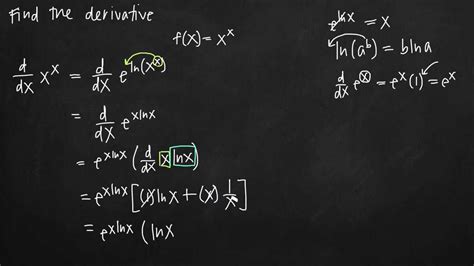 Find the derivative
f(x) = x^x
d/dx x^x = d/dx e^(ln(x^x))
= d/dx e^(xlnx)
= e^(xlnx) (d/dx x lnx)
= e^(xlnx) [(1)lnx + (x) 1/x]
= e^(xlnx) (lnx
e^(lnx) = x
ln(a^b) = blna
d/dx e^x = e^x(1) = e^x